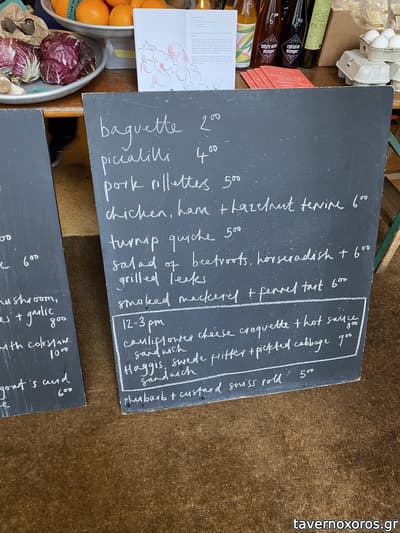 baguette 2.00
piccalilli 4.00
pork rillettes 5.00
chicken, ham + hazelnut terrine 6.00
turnip quiche 5.00
salad of beetroots, horseradish + 6.00
grilled leeks
smoked mackerel + fennel tart 6.00
12-3pm
cauliflower cheese croquette + hot sauce 8.00
sandwich
Haggis, swede fritter + pickled cabbage 7.00
sandwich
rhubarb + custard swiss roll 5.00
00
6.00
mushroom,
+ garlic
8.00
with coleslaw
10.00
goat's curd
6.00
tavernoxoros.gr